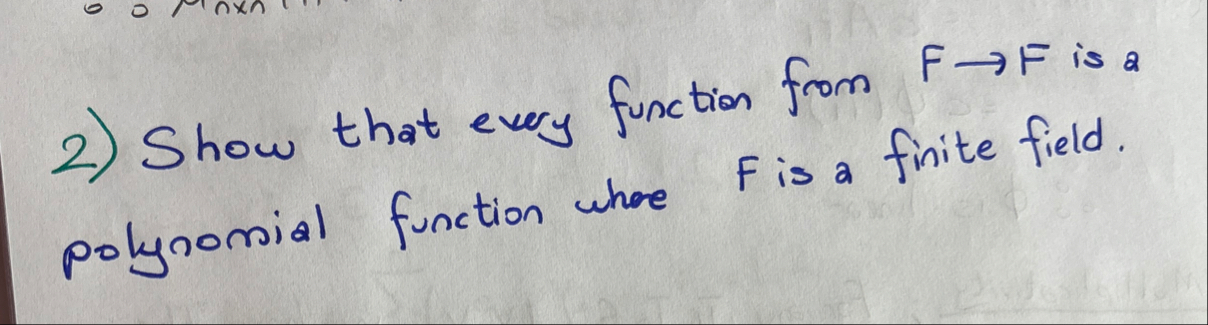 2) Show that every function from F → F is a
polynomial function where F is a finite field.